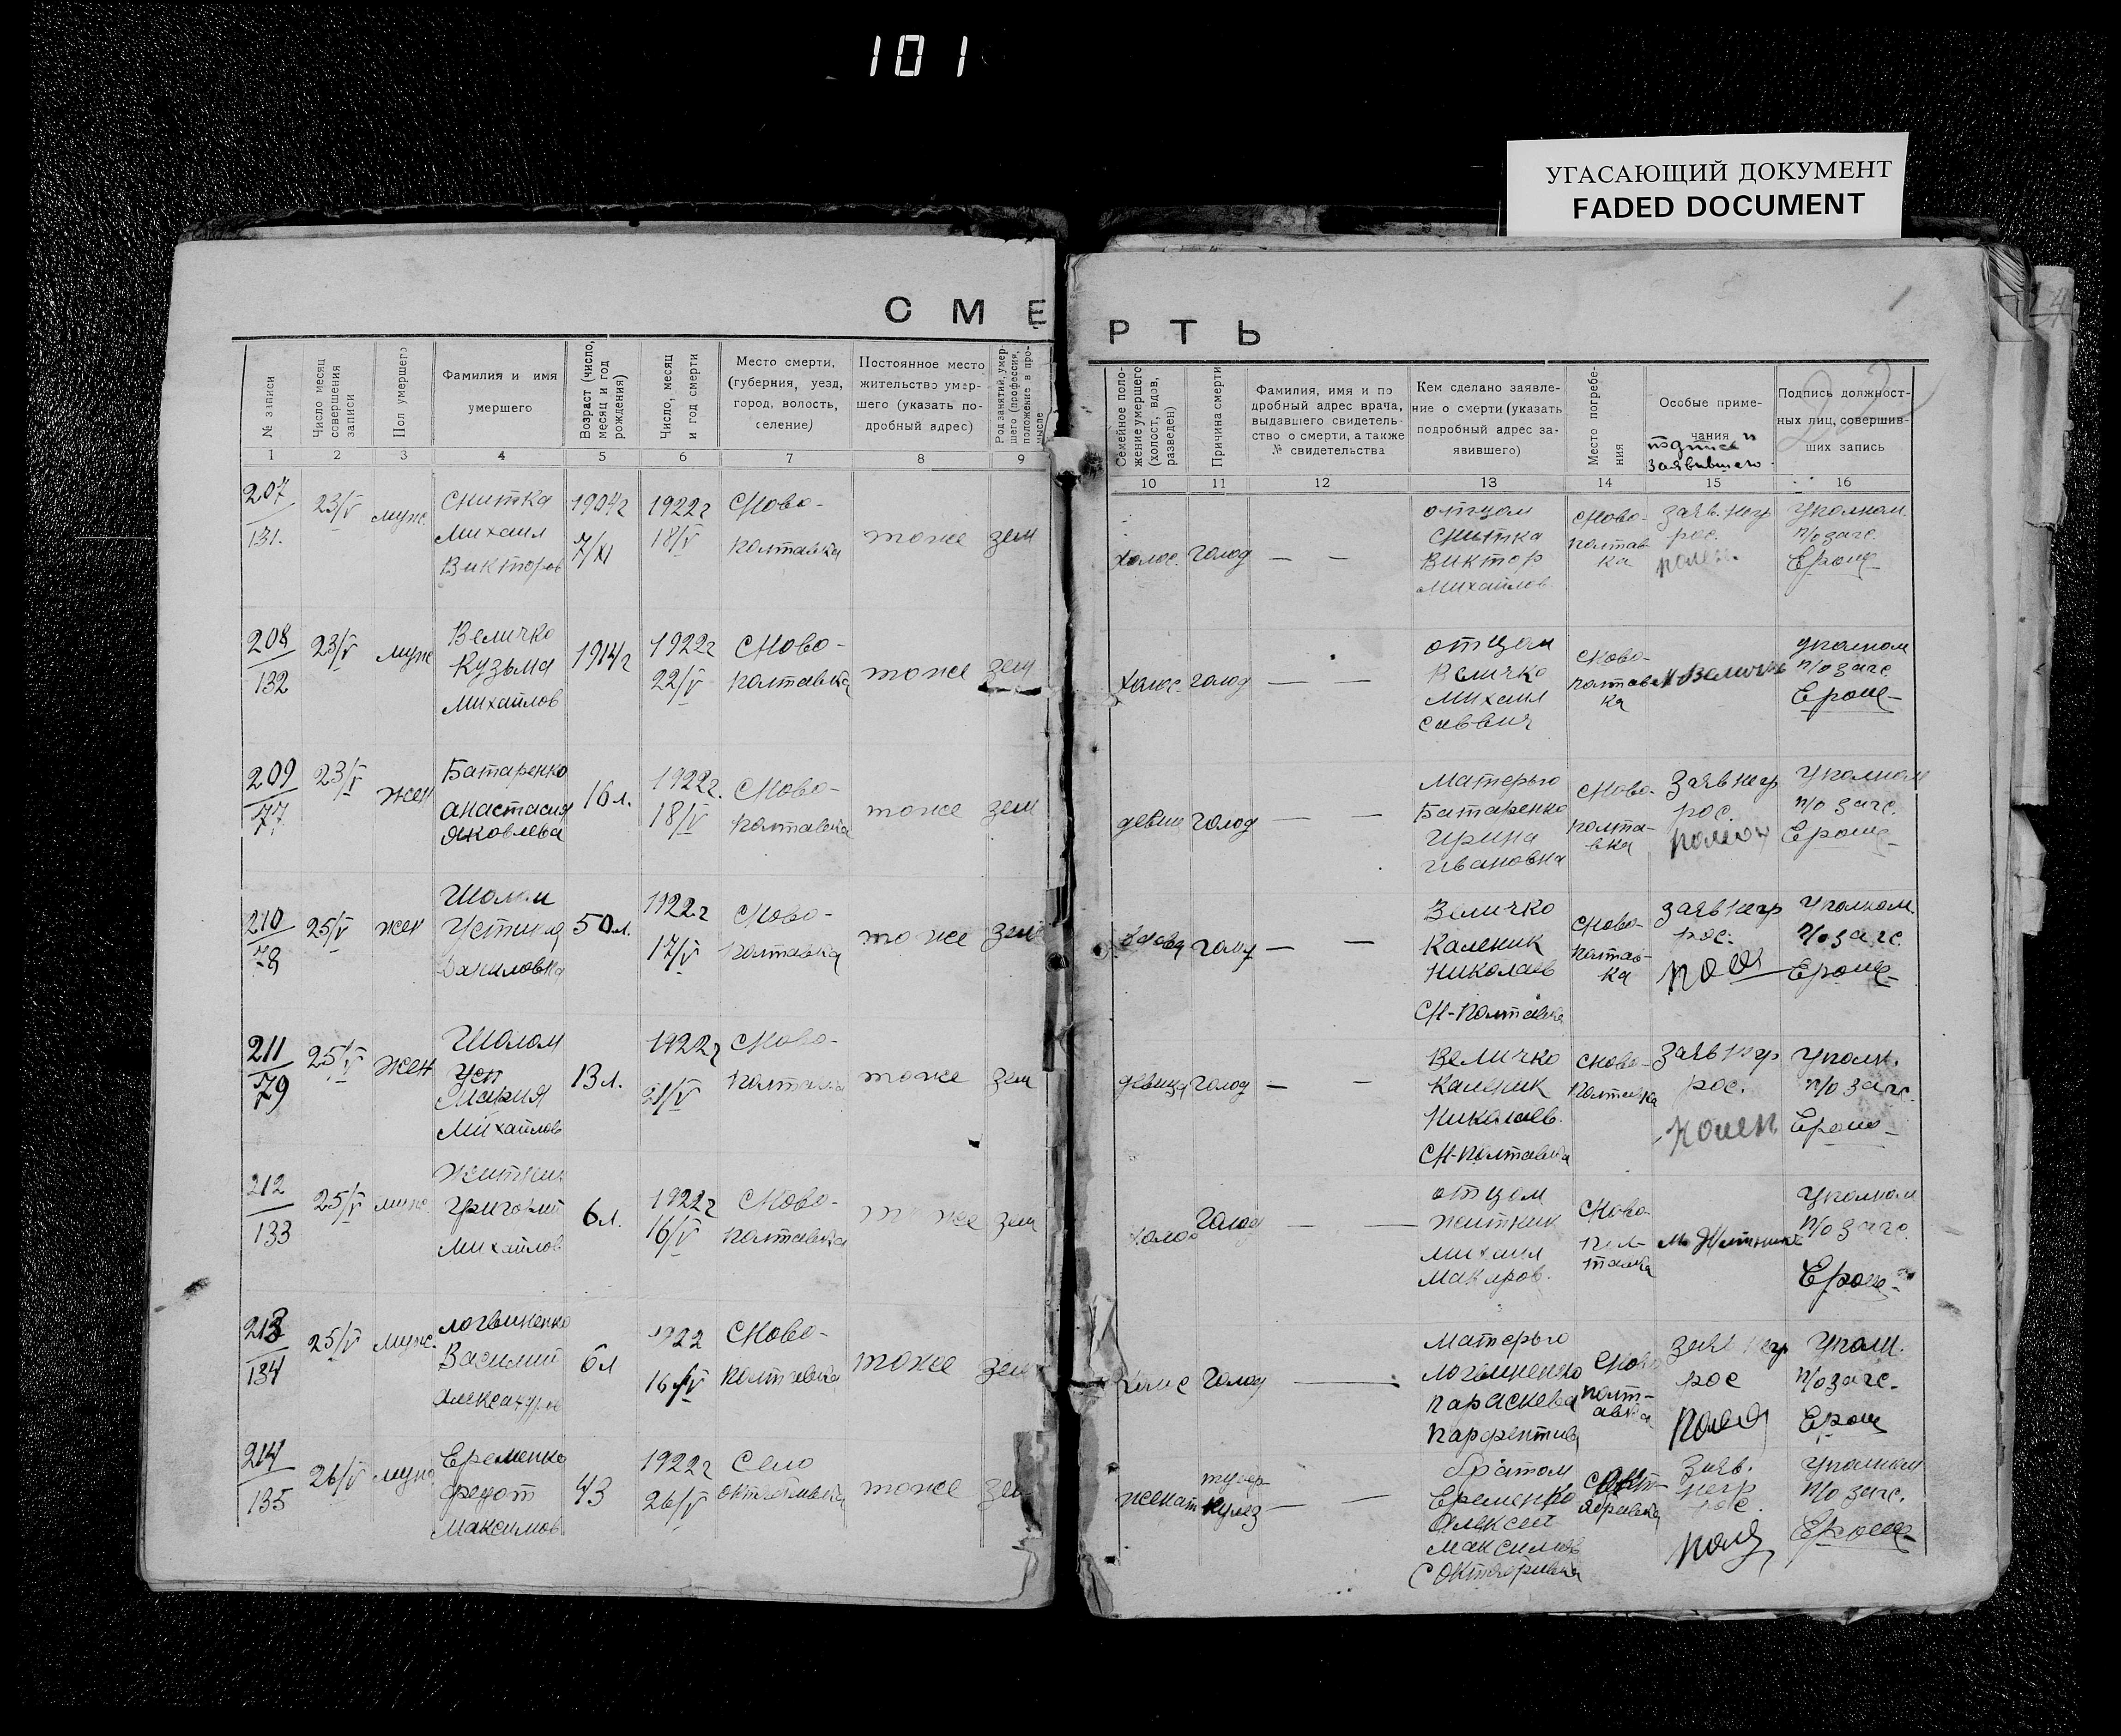 101
УГАСАЮЩИЙ ДОКУМЕНТ
FADED DOCUMENT
СМЕРТЬ
№ записи
Число месяц совершения записи
Пол умершего
Фамилия и имя умершего
Возраст (число, месяц и год рождения)
Число, месяц и год смерти
Место смерти, (губерния, уезд, город, волость, селение)
Постоянное место жительство умершего (указать подробный адрес)
Род занятий, умершего (профессия, положение в промысле
Семейное положение умершего (холост, вдов, разведен)
Причина смерти
Фамилия, имя и подробный адрес врача, выдавшего свидетельство о смерти, а также № свидетельства
Кем сделано заявление о смерти (указать подробный адрес заявившего)
Место погребения
Особые примечания
подпись заявившего
Подпись должностных лиц, совершивших запись
1 2 3 4 5 6 7 8 9 10 11 12 13 14 15 16
207/131. 23/V муж. Снитка Михаил Викторов 1904г 7/XI 1922г 18/V С Ново-полтавка тоже зем холос. голод — — отцом Снитка Виктор Михайлов С Ново-полтавка заяв. негр рос. Уполном. п/о загс. Ерощ
208/132 23/V муж Величко Кузьма Михайлов 1914г 1922г 22/V С Ново-полтавка тоже зем холос. голод — — отцом Величко Михаил Саввич С Ново-полтавка М Величко уполном п/о загс Ерощ
209/77 23/V жен Батаренко Анастасия Яковлева 16 л. 1922г. 18/V С Ново-полтавка тоже зем девиц голод — — Матерью Батаренко Ирина Ивановна С Ново-полтавка Заяв негр рос. Уполном п/о загс. Ерощ
210/78 25/V жен Шолом Устиния Даниловна 50 л. 1922г 17/V С Ново-полтавка тоже зем вдова голод — — Величко Каленик Николаев С Н-Полтавка С Ново-полтавка заяв негр рос. Уполном. п/о загс. Ерощ
211/79 25/V жен Шолом Мария Михайлов 13 л. 1922г 21/V С Ново-полтавка тоже зем девица голод — — Величко Каленик Николаев. С Н-Полтавка С Ново-полтавка Заяв негр рос. Уполн. п/о загс. Ерощ
212/133 25/V муж. Житник Григорий Михайлов 6 л. 1922г 16/V С Ново-полтавка тоже зем холос голод — — отцом Житник Михаил Макаров. С Ново-полтавка М Житник Уполном п/о загс. Ерощ
213/134 25/V муж. Логвиненко Василий Александров 6 л 1922 16/V С Ново-полтавка тоже зем холос голод — Матерью Логвиненко Параскева С Ново-полтавка заяв негр рос Уполн. п/о загс. Ерощ
214/135 26/V муж Еременко Федот Максимов 43 1922г 26/V Село Октябрьевка тоже зем женат тубер — — братом Еременко Алексей Максимов заяв. негр рос. Уполном п/о загс. Ерощ